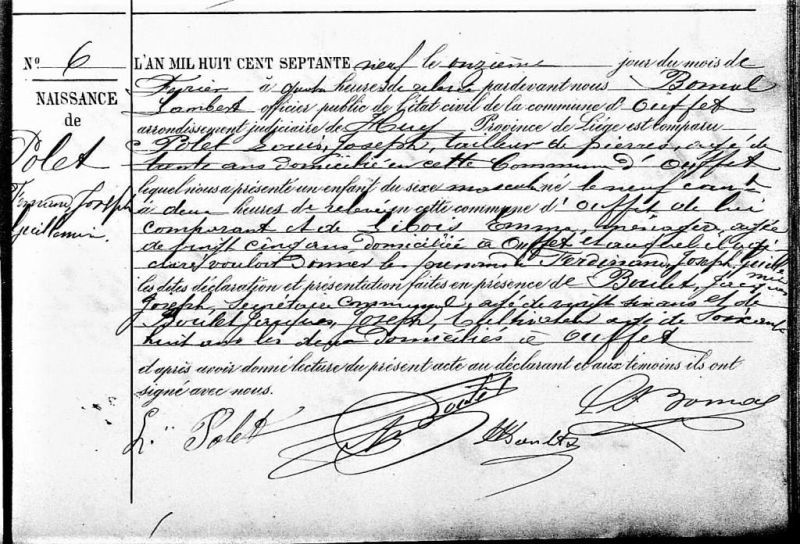 N° 6
NAISSANCE
de
Polet
Fernand Joseph
Guillemin
L'AN MIL HUIT CENT SEPTANTE neuf le onzième jour du mois de
Février à quatre heures de relevée pardevant nous Bomal
Lambert officier public de l'état civil de la commune d'Ouffet
arrondissement judiciaire de Huy Province de Liége est comparu
Polet Louis, Joseph, tailleur de pierres, agé de
trente ans domicilié en cette Commune d'Ouffet
lequel nous a présenté un enfant du sexe masculin né le neuf cour^t
à deux heures de relevée en cette commune d'Ouffet de lui
comparant et de Libois Emma, ménagère, agée
de vingt cinq ans, domiciliée à Ouffet et auquel il a dé
claré vouloir donner les prénoms de Ferdinand, Joseph, Guille
min
les dites déclaration et présentation faites en présence de Boulet, Jacques
Joseph, Secrétaire Communal, agé de vingt six ans et de
Boulet Jacques, Joseph, Cultivateur agé de soixante
huit ans les deux domiciliés à Ouffet
et après avoir donné lecture du présent acte au déclarant et aux témoins ils ont
signé avec nous.
L. Polet Boulet Boulet Bomal